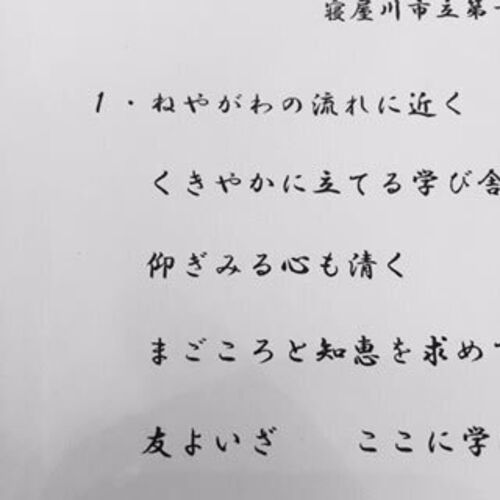 寝屋川市立第
1・ねやがわの流れに近く
くきやかに立てる学び舎
仰ぎみる心も清く
まごころと知恵を求めて
友よいざ　ここに学